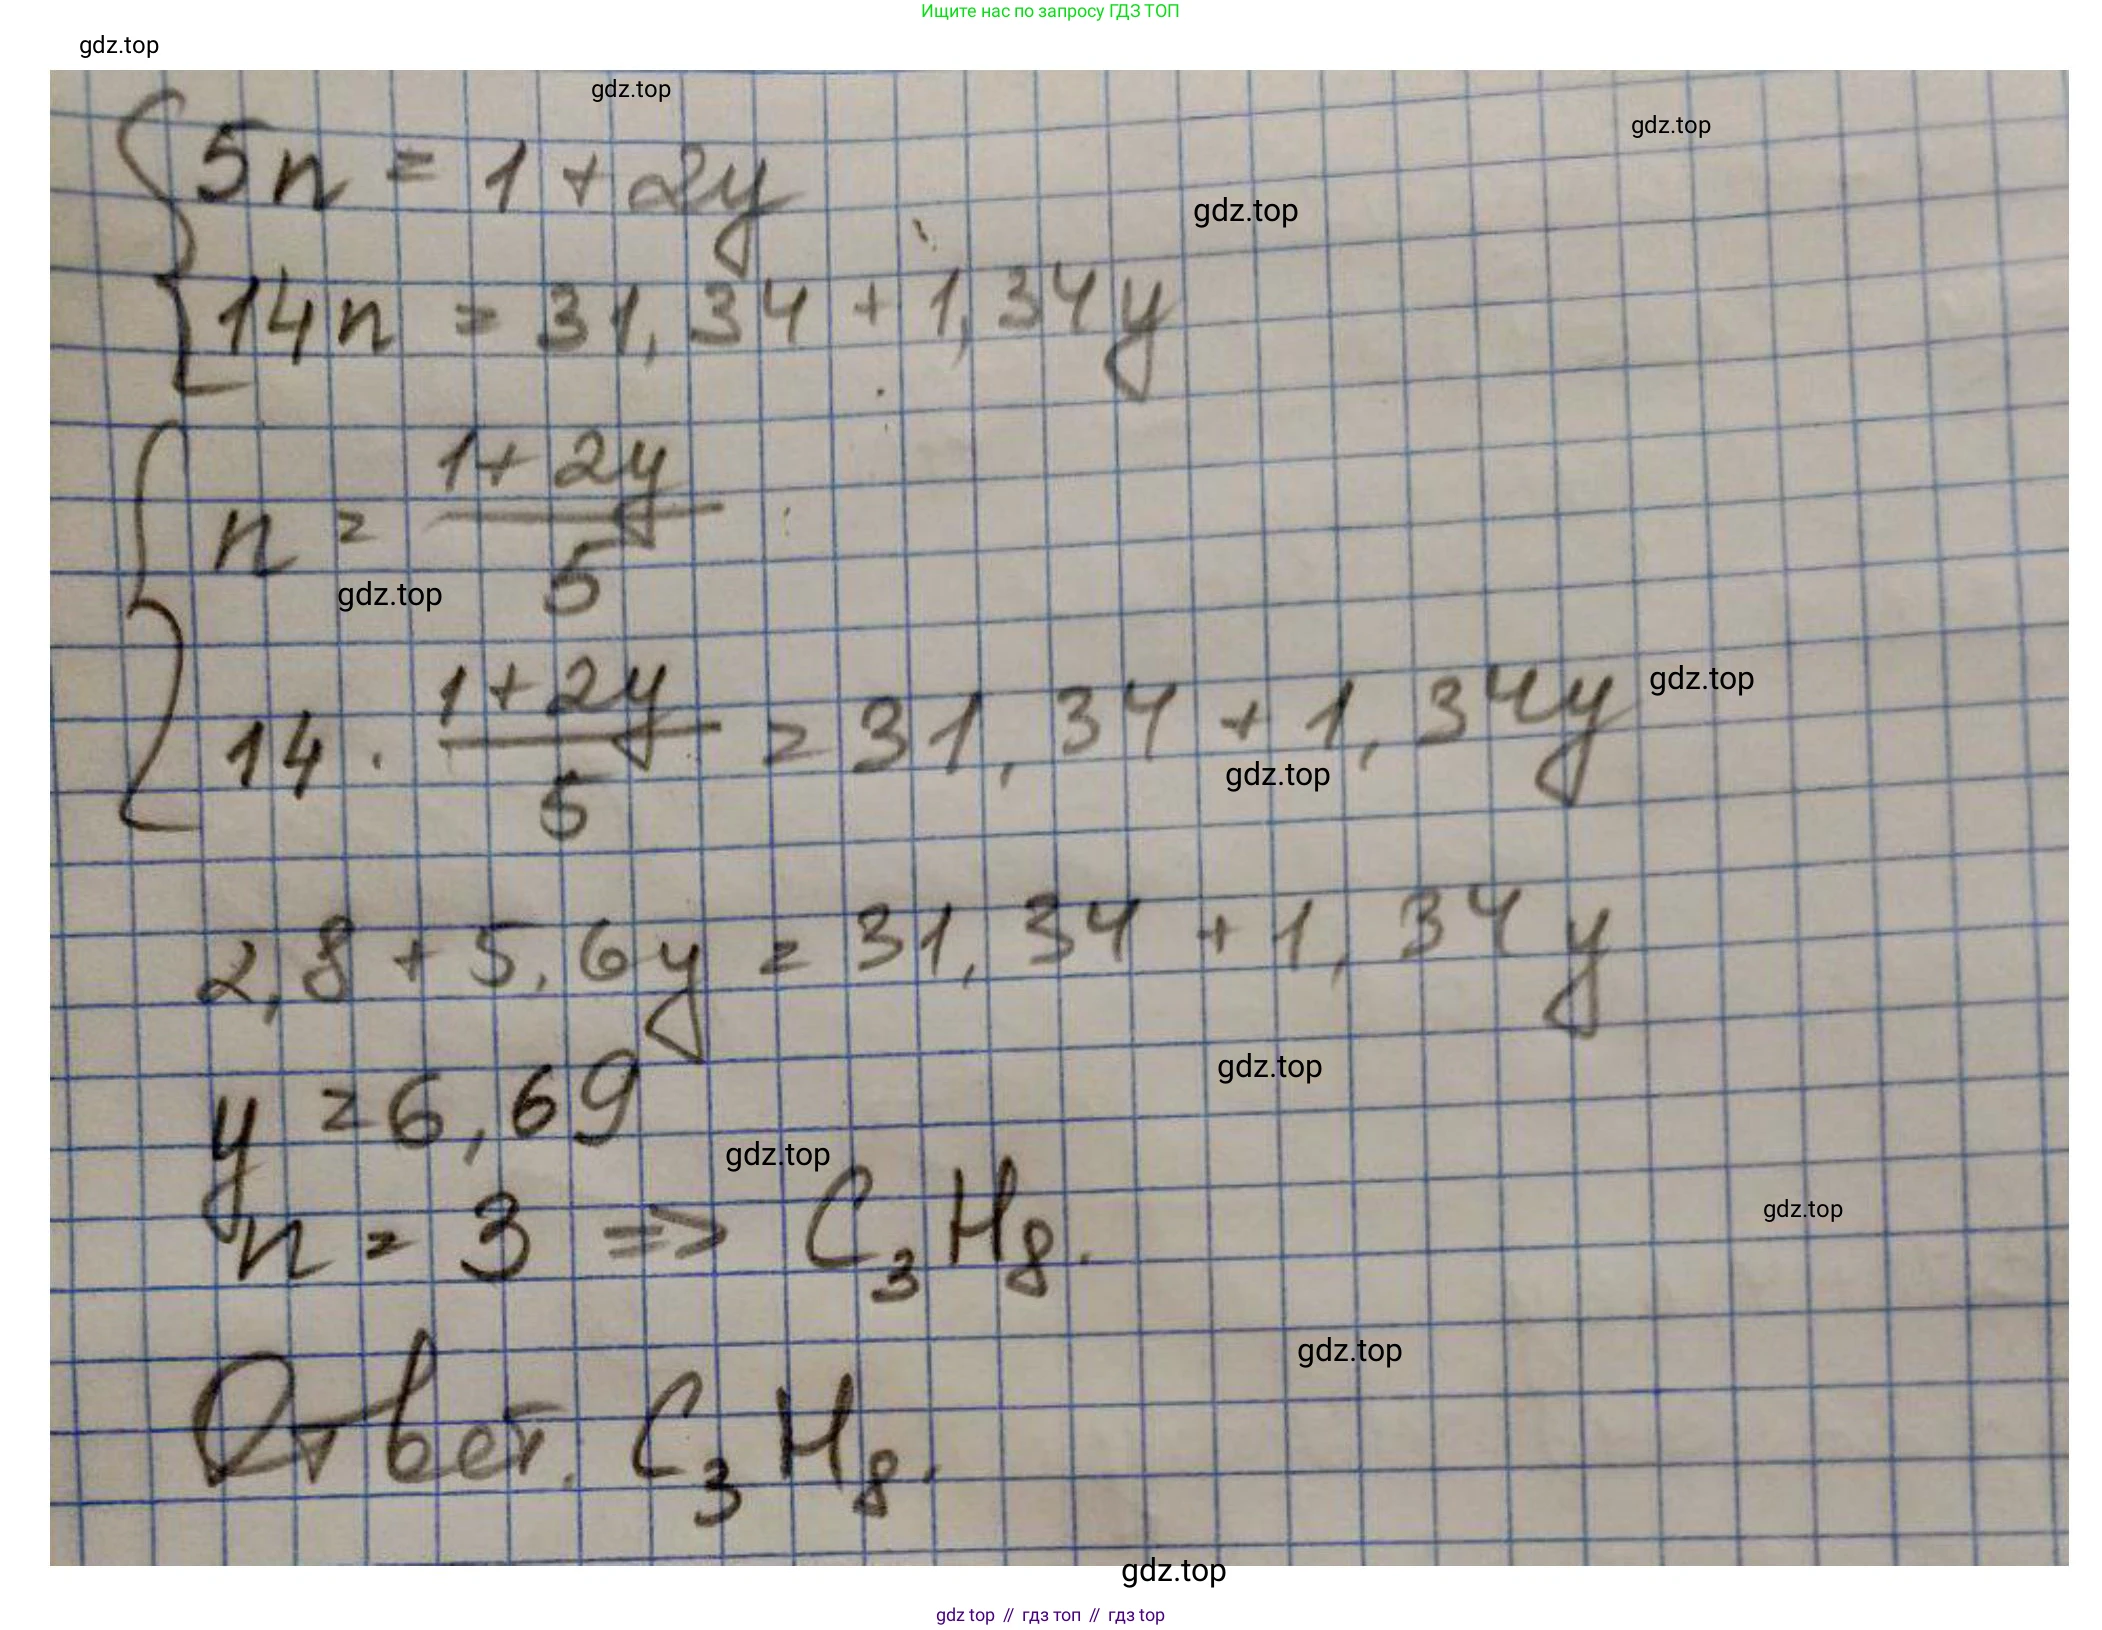 Ищите нас по запросу ГДЗ ТОП
gdz.top
gdz.top
gdz.top
5n = 1 + 2y
gdz.top
14n = 31,34 + 1,34y
n = (1 + 2y)/5
gdz.top
14 · (1 + 2y)/5 = 31,34 + 1,34y
gdz.top
gdz.top
2,8 + 5,6y = 31,34 + 1,34y
gdz.top
y = 6,69
gdz.top
n = 3 => C₃H₈.
gdz.top
gdz.top
Ответ. C₃H₈.
gdz.top
gdz top // гдз топ // gdz top